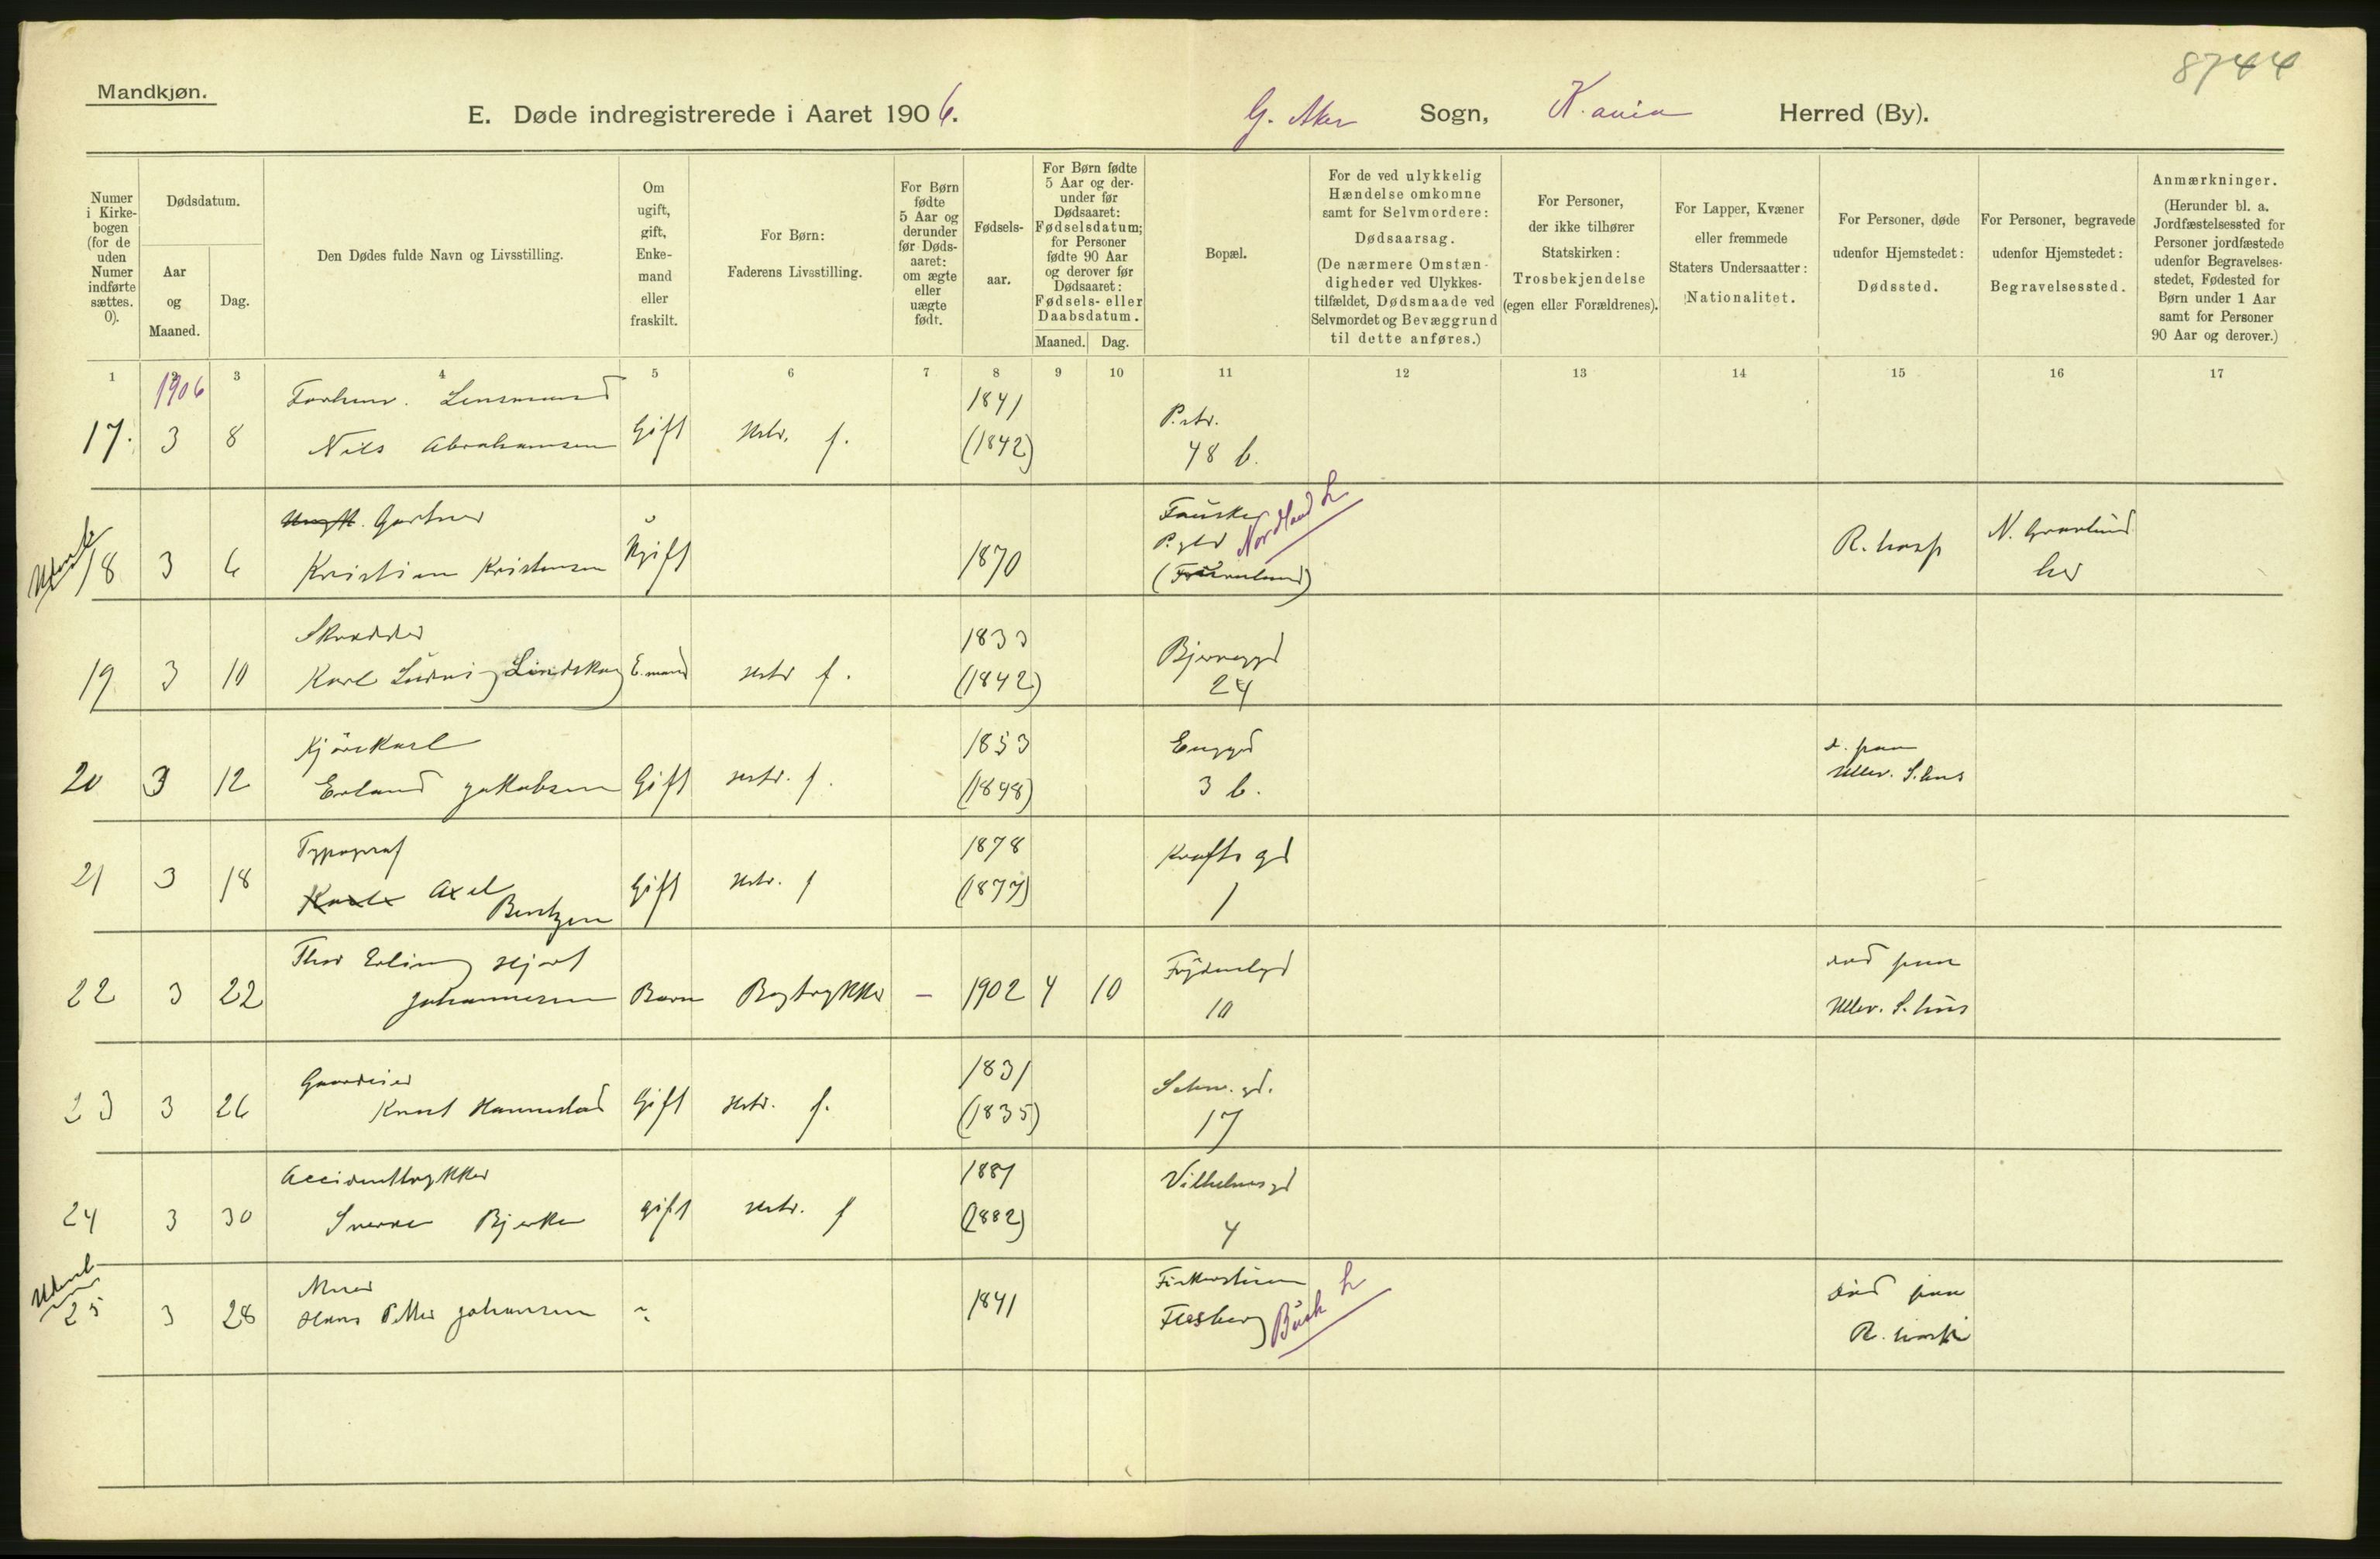 8744
Mandkjøn.
E. Døde indregistrerede i Aaret 1906.
G. Aker Sogn, K.ania Herred (By).
Numer i Kirkebogen (for de uden Numer indførte sættes. 0).
Dødsdatum.
Aar og Maaned.
Dag.
Den Dødes fulde Navn og Livsstilling.
Om ugift, gift, Enkemand eller fraskilt.
For Børn:
Faderens Livsstilling.
For Børn fødte 5 Aar og derunder før Dødsaaret: om ægte eller uægte født.
Fødselsaar.
For Børn fødte 5 Aar og derunder før Dødsaaret: Fødselsdatum; for Personer fødte 90 Aar og derover før Dødsaaret: Fødsels- eller Daabsdatum.
Maaned. Dag.
Bopæl.
For de ved ulykkelig Hændelse omkomne samt for Selvmordere: Dødsaarsag.
(De nærmere Omstændigheder ved Ulykkestilfældet, Dødsmaade ved Selvmordet og Bevæggrund til dette anføres.)
For Personer, der ikke tilhører Statskirken: Trosbekjendelse (egen eller Forældrenes).
For Lapper, Kvæner eller fremmede Staters Undersaatter: Nationalitet.
For Personer, døde udenfor Hjemstedet: Dødssted.
For Personer, begravede udenfor Hjemstedet: Begravelsessted.
Anmærkninger.
(Herunder bl. a. Jordfæstelsessted for Personer jordfæstede udenfor Begravelsesstedet, Fødested for Børn under 1 Aar samt for Personer 90 Aar og derover.)
1 2 3 4 5 6 7 8 9 10 11 12 13 14 15 16 17
1906
Forhenv. Lensmand 1841 P.str.
17. 3 8 Nils Abrahamsen Gift f. (1842) 48 b.
Gartner Fauske Nordland
18 3 6 Kristian Kristensen Ugift 1870 P.gld R. hosp N. Gravlund
Skrædder 1833 Bjerregd
19 3 10 Karl Ludvig Lindskog E.mand f. (1842) 24
Kjørekarl 1853 Enggd d. paa
20 3 12 Erland Jakobsen Gift f. (1848) 3 b. Ullev. S.hus
Typograf 1878 Krafts gd
21 3 18 Karl Axel Bentzen Gift f (1877) 1
Thor Erling Hjort død paa
22 3 22 Johannesen Barn Bogtrykker – 1902 4 10 10 Ullev. S.hus
Gaardeier 1831 Schw. gd.
23 3 26 Knut Hannestad Gift f. (1835) 17
Accidenttrykker 1881 Vilhelmsgd
24 3 30 Sverre Bjerke gift f (1882) 4
Murer død paa
25 3 28 Hans Petter Johansen ~ 1841 Flesberg Busk R. hosp